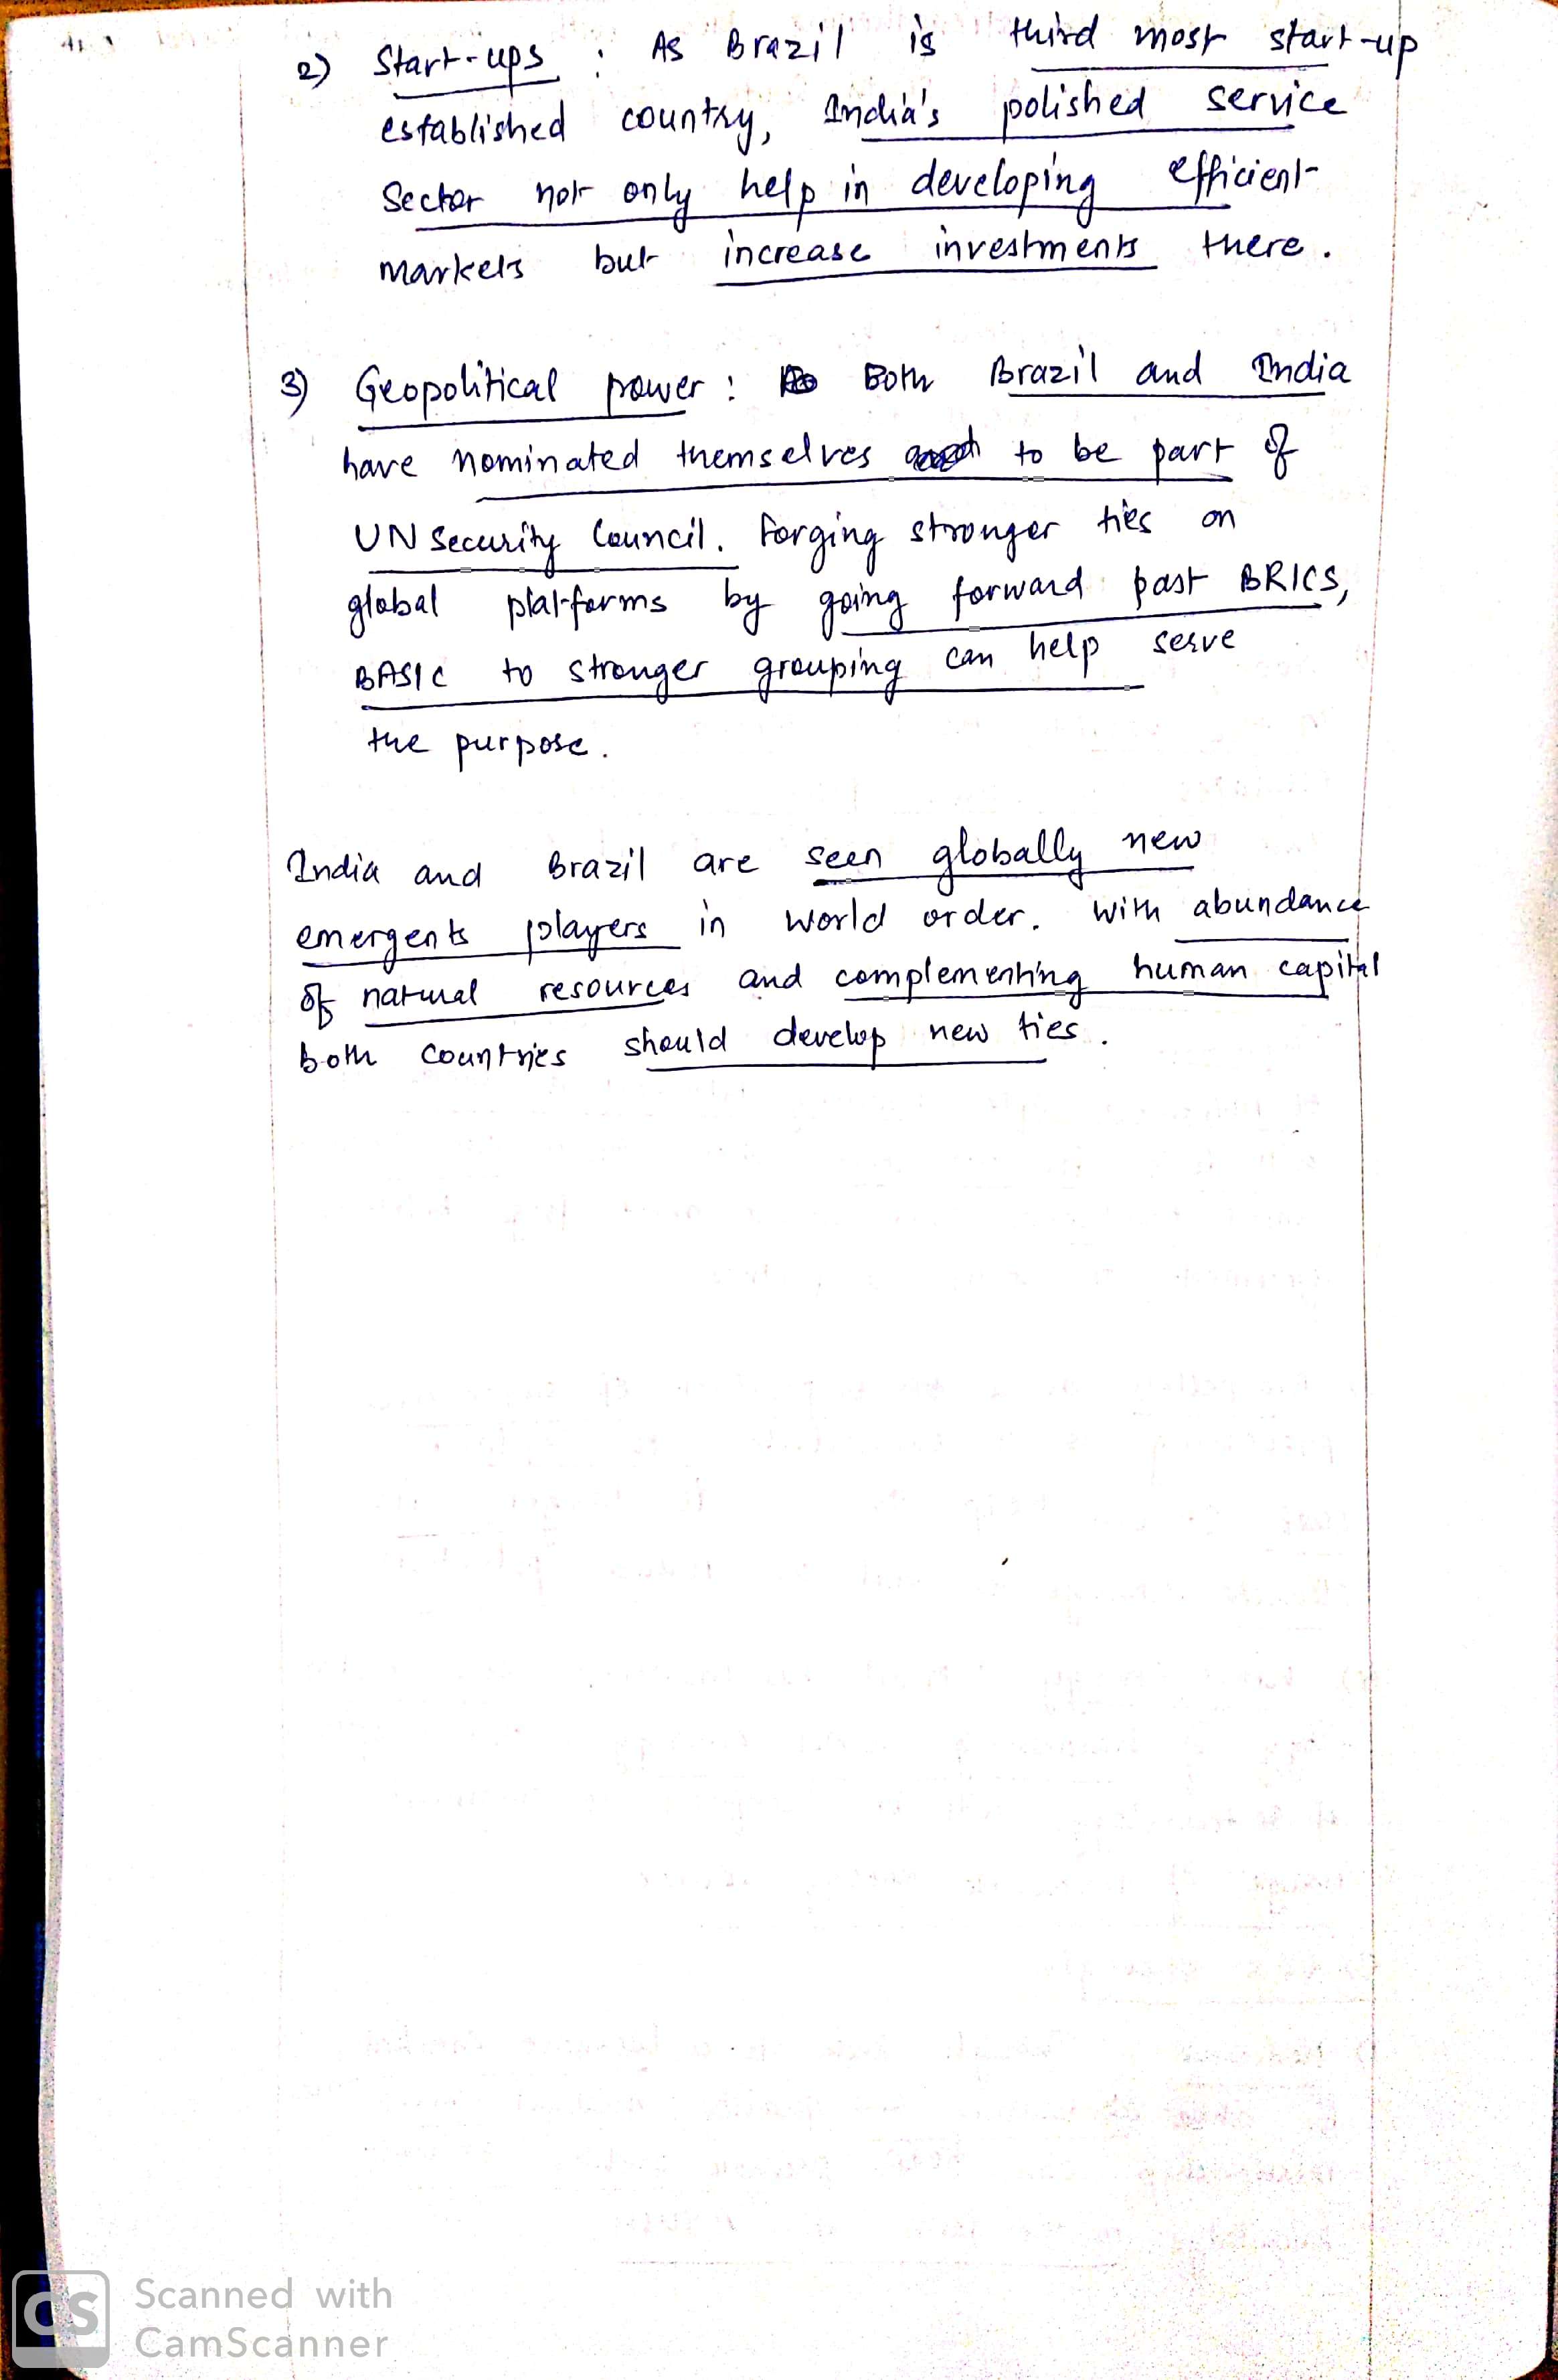 2) Start-ups : As Brazil is third most start-up
established country, India's polished service
Sector not only help in developing efficient
markets but increase investments there.
3) Geopolitical power : Both Brazil and India
have nominated themselves to be part of
UN Security Council. Forging stronger ties on
global platforms by going forward past BRICS,
BASIC to stronger grouping can help serve
the purpose.
India and Brazil are seen globally new
emergents players in world order. With abundance
of natural resources and complementing human capital
both countries should develop new ties.
CS Scanned with
CamScanner